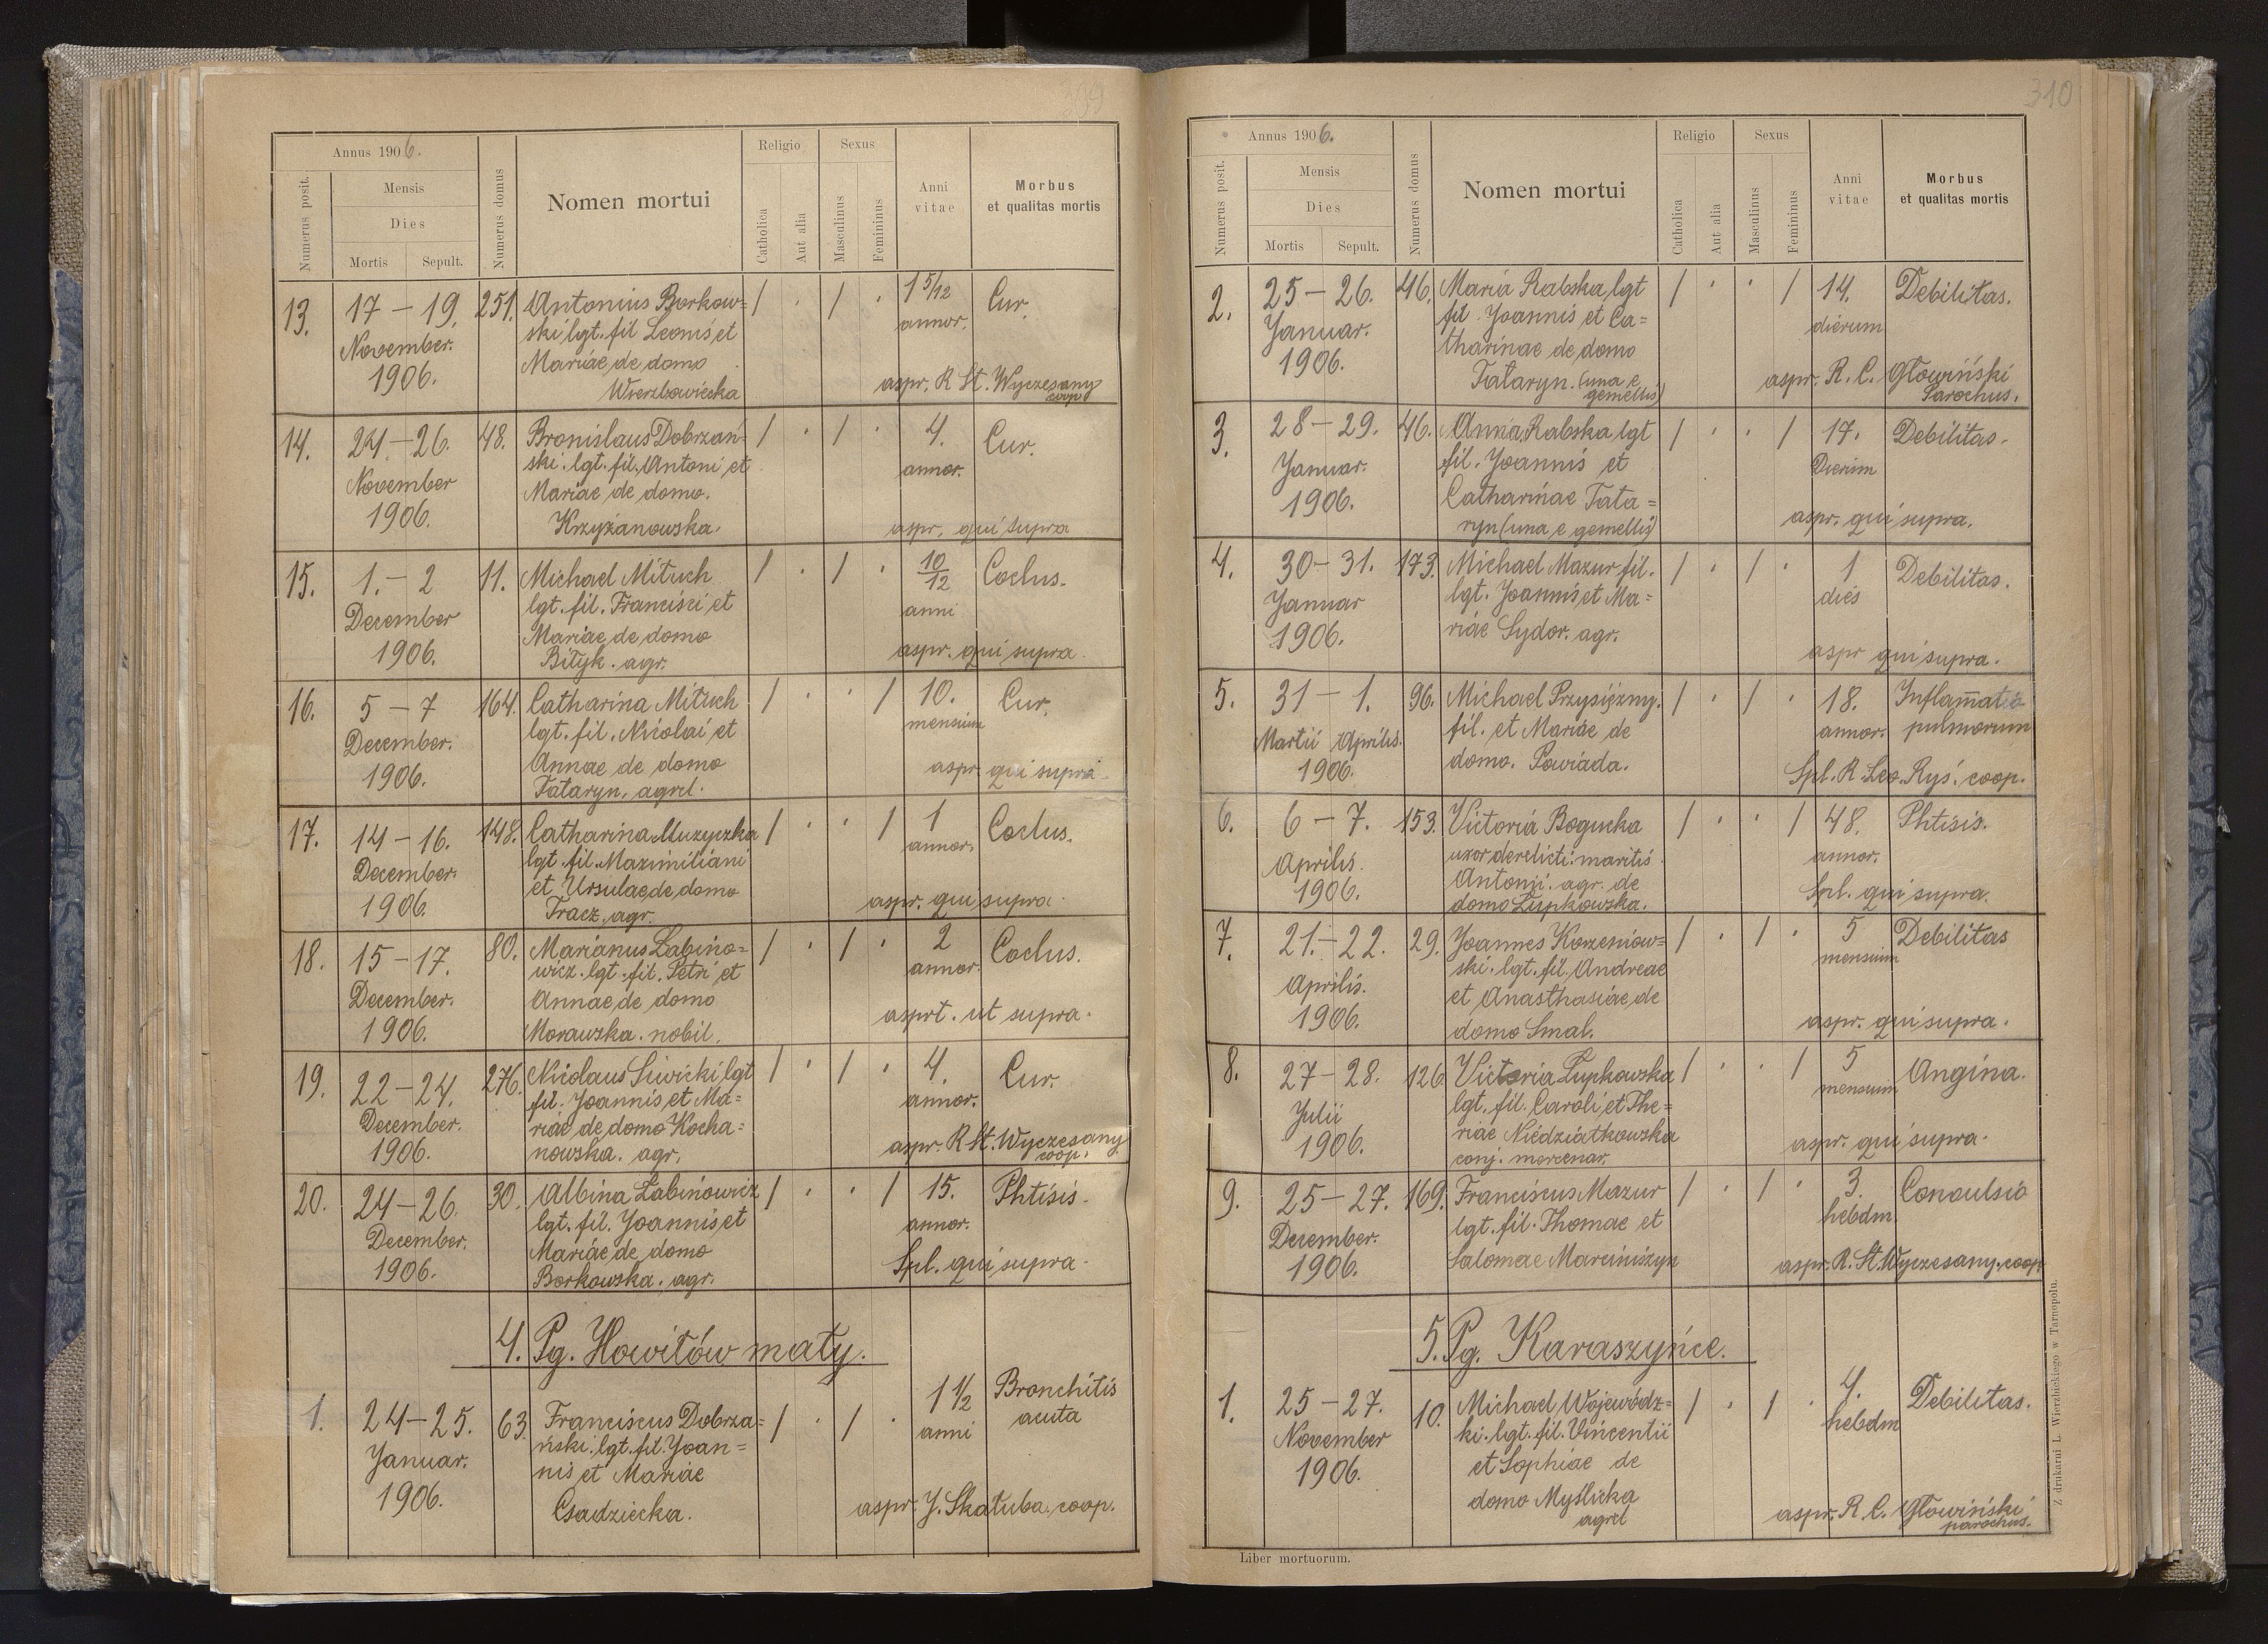 309
Annus 1906.
Numerus posit.
Mensis
Dies
Mortis Sepult.
Numerus domus
Nomen mortui
Religio
Catholica
Aut alia
Sexus
Masculinus
Femininus
Anni
vitae
Morbus
et qualitas mortis
13. 17 – 19. 251. Antonius Borkow= / . / . 1 5/12 Cur.
November. ski lgt. fil Leonis et annor.
1906. Mariae de domo
Wierzbowiecka aspr. R St. Wyczesany
coop
14. 24 – 26. 48. Bronislaus Dobrzań= / . / . 4. Cur.
November ski. lgt. fil. Antoni et annor.
1906. Mariae de domo.
Krzyżanowska. aspr. qui supra
15. 1. – 2 11. Michael Mituch / . / . 10/12 Coclus.
December lgt. fil. Francisci et anni
1906. Mariae de domo
Bityk. agr. aspr. qui supra.
16. 5 – 7 164. Catharina Mituch / . . / 10. Cur.
December. lgt. fil. Nicolai et mensium
1906. Annae de domo
Tataryn. agricl. aspr. qui supra.
17. 14 – 16. 148. Catharina Muzyczka / . . / 1 Coclus.
December. lgt. fil. Maximiliani annor.
1906. et Ursulae de domo
Tracz. agr. aspr. qui supra.
18. 15 – 17. 80. Marianus Łabino= / . / . 2 Coclus.
December. wicz. lgt. fil. Petri et annor.
1906. Annae de domo
Morawska. nobil. asprt. ut supra.
19. 22 – 24. 276. Nicolaus Siwicki lgt / . / . 4. Cur.
December. fil. Joannis et Ma= annor.
1906. riae de domo Kocha=
nowska. agr. aspr. R St. Wyczesany
coop.
20. 24 – 26 30. Albina Łabinowicz / . . / 15. Phtisis.
December. lgt. fil. Joannis et annor.
1906. Mariae de domo
Borkowska. agr. Spl. qui supra.
4. Pg. Howiłów mały.
1. 24 – 25. 63. Franciscus Dobrza= / . / . 1 1/2 Bronchitis
Januar. ński. lgt. fil. Joan= anni acuta
1906. nis et Mariae
Csadziecka. aspr. J. Skałuba. coop.
310
Annus 1906.
Numerus posit.
Mensis
Dies
Mortis Sepult.
Numerus domus
Nomen mortui
Religio
Catholica
Aut alia
Sexus
Masculinus
Femininus
Anni
vitae
Morbus
et qualitas mortis
2. 25 – 26. 46. Maria Rabska lgt / . . / 14. Debilitas.
Januar. fil. Joannis et Ca= dierum
1906. tharinae de domo
Tataryn. (una e aspr. R. C. Głowiński
gemellis) Parochus.
3. 28 – 29. 46. Anna Rabska lgt / . . / 17. Debilitas.
Januar. fil. Joannis et Dierum
1906. Catharinae Tata=
ryn (una e gemellis) aspr. qui supra.
4. 30 – 31. 173. Michael Mazur fil. / . / . 1 Debilitas.
Januar lgt. Joannis et Ma= dies
1906. riae Sydor. agr.
aspr qui supra.
5. 31 – 1. 96. Michael Przysiężny. / . / . 18. Inflam̄atio
Martii Aprilis. fil. et Mariae de annor. pulmorum
1906. domo. Powiada.
Spl. R. Leo. Ryś. coop.
6. 6 – 7. 153. Victoria Bogucka / . . / 48. Phtisis.
Aprilis uxor derelicti. maritis annor.
1906. Antonii. agr. de
domo Łupkowska. Spl. qui supra.
7. 21. – 22. 29. Joannes Korzeniow= / . / . 5 Debilitas
Aprilis. ski. lgt. fil. Andreae mensium
1906. et Anasthasiae de
domo Smal. aspr. qui supra.
8. 27 – 28. 126. Victoria Łupkowska / . . / 5 Angina.
Julii lgt. fil. Caroli et The= mensium
1906. riae Niedziałkowska
conj. mercenar. aspr. qui supra.
9. 25 – 27. 169. Franciscus Mazur / . / . 3. Convulsio
December. lgt. fil. Thomae et hebdm.
1906. Salomae Marciniszyn aspr. R. St. Wyczesany. coop
5. Pg. Karaszyńce.
1. 25 – 27. 10. Michael Wojewódz= / . / . 4. Debilitas.
November ki. lgt. fil. Vincentii hebdm
1906. et Sophiae de
domo Myślicka
agrcl aspr. R. C. Głowiński
parochus.
Liber mortuorum.
Z drukarni L. Wierzbickiego w Tarnopolu.